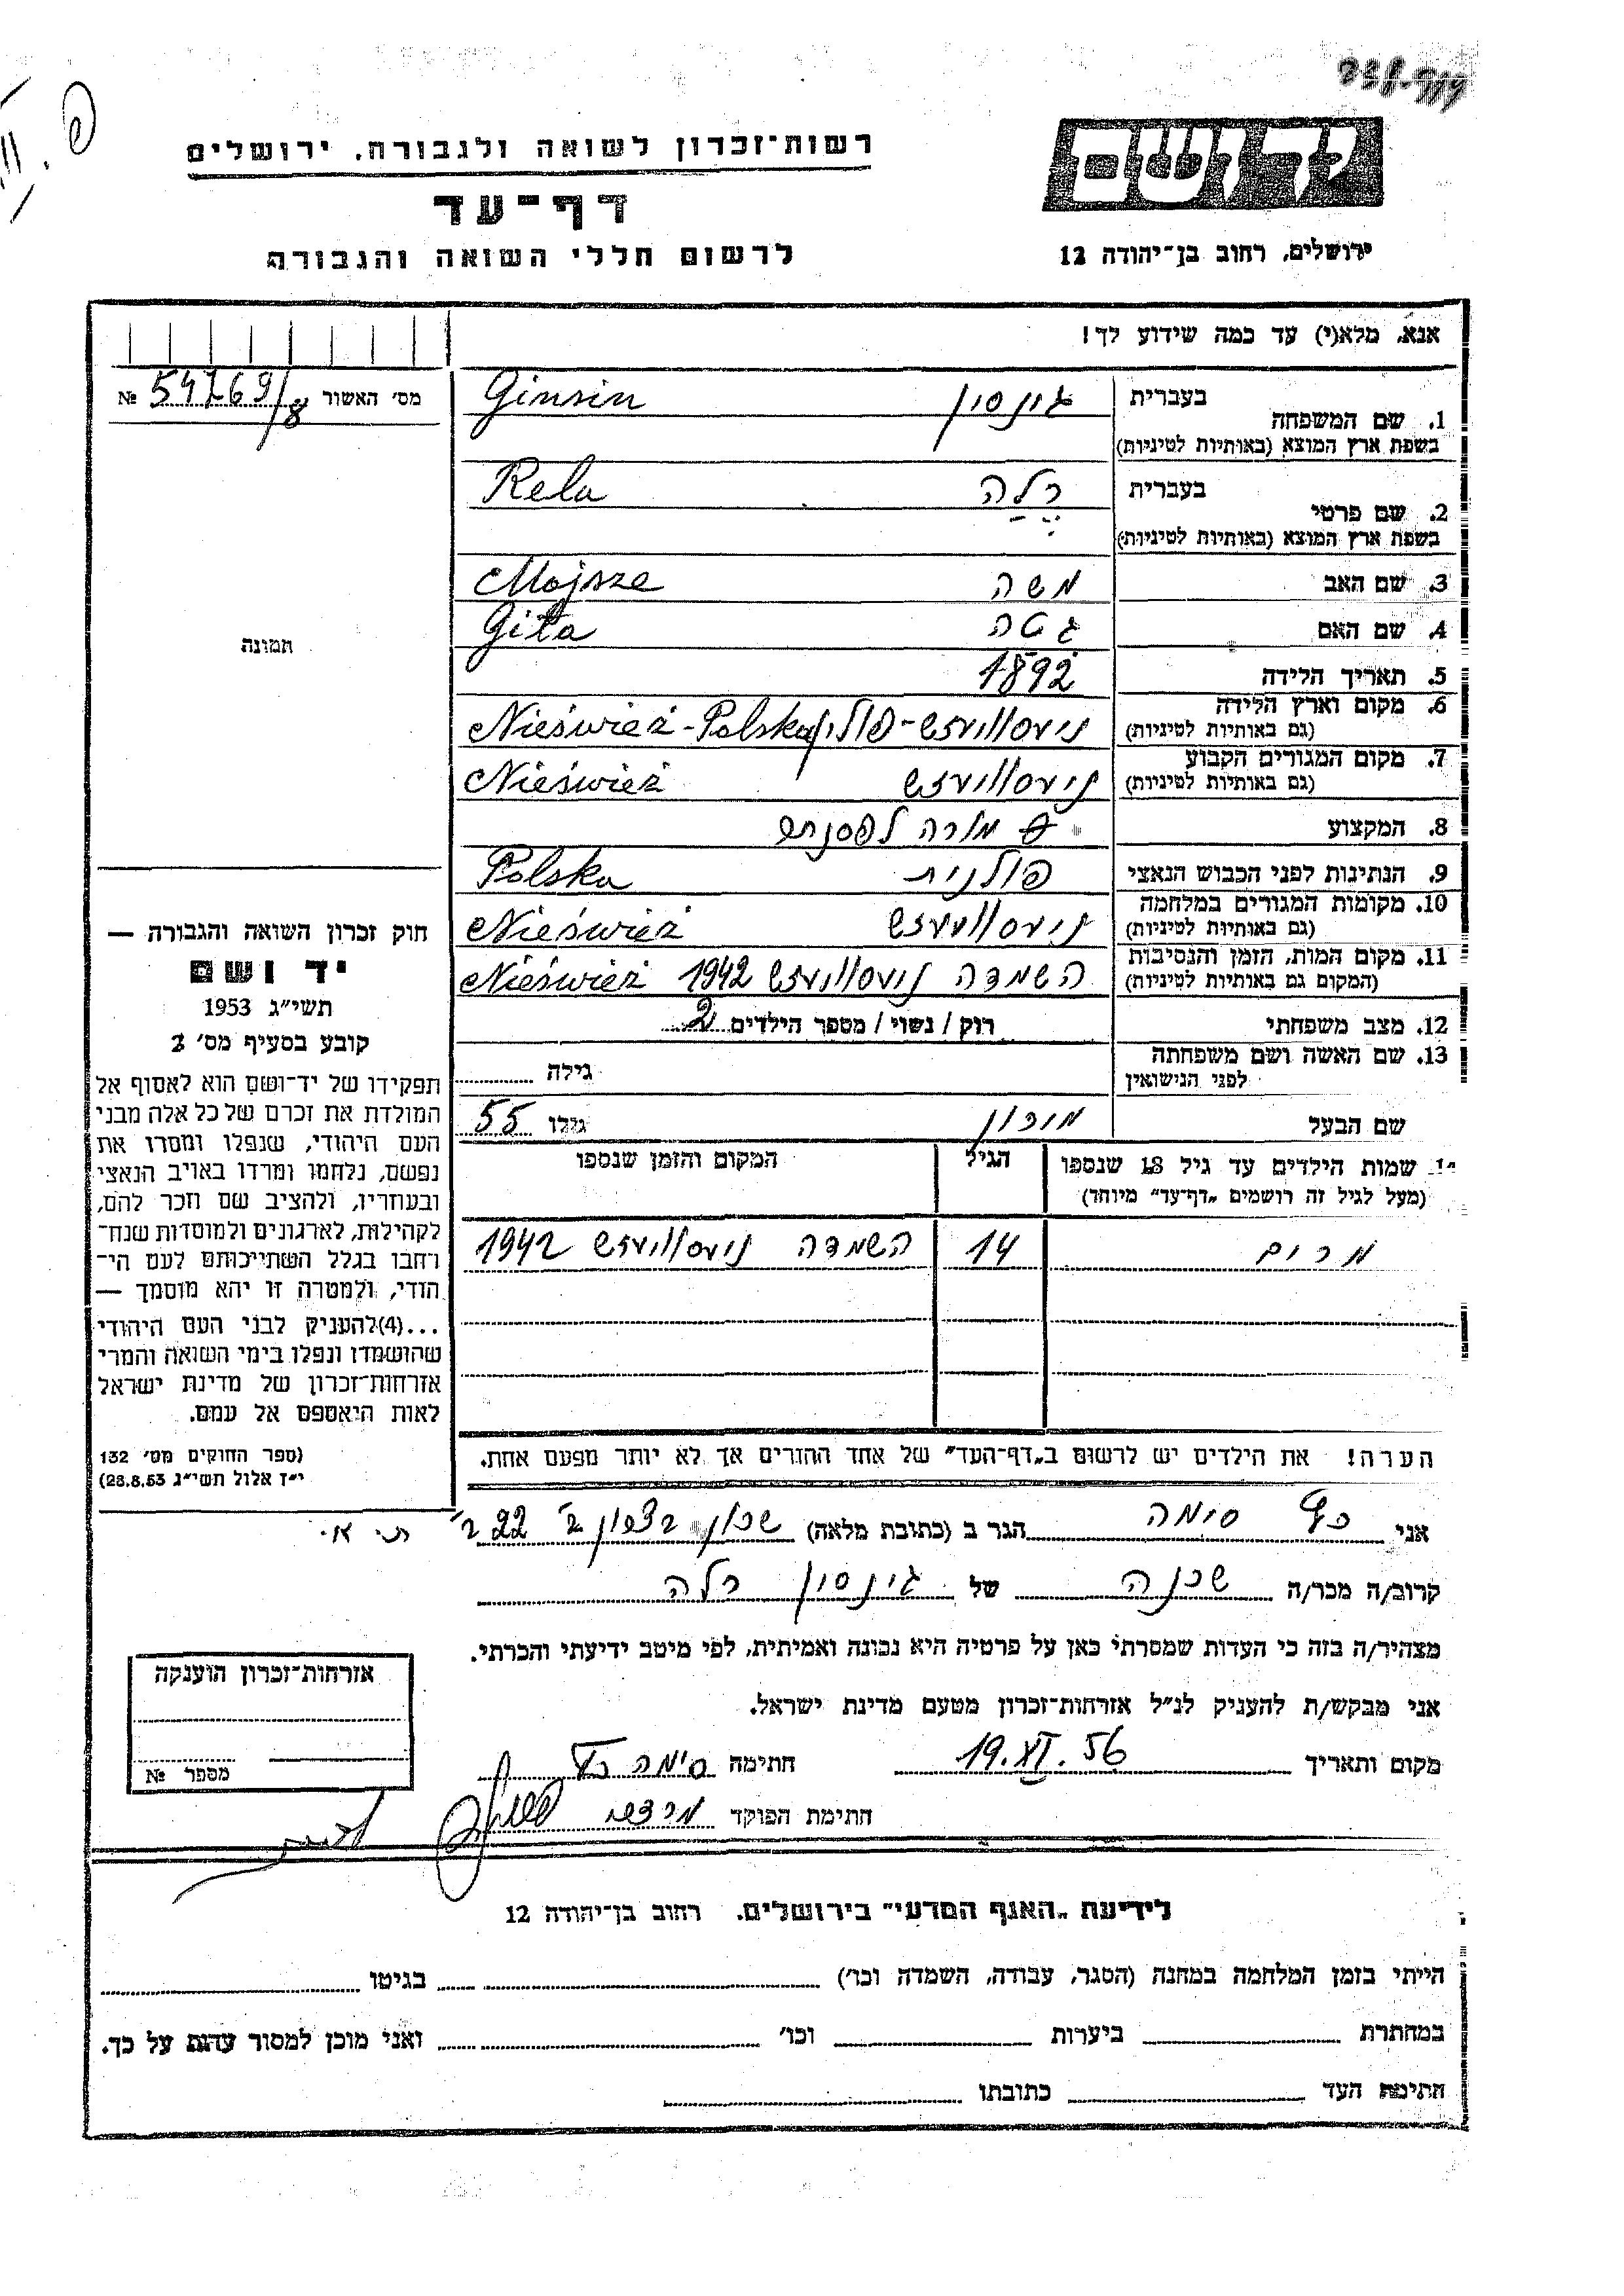 רשות־זכרון לשואה ולגבורה, ירושלים
דף־עד
לרשום חללי השואה והגבורה
יד ושם
ירושלים, רחוב בן־יהודה 12
אנא, מלא(י) עד כמה שידוע לך!
מס׳ האשור № 54769/8
תמונה
1. שם המשפחה בעברית גינסין Ginsin
בשפת ארץ המוצא (באותיות לטיניות)
2. שם פרטי בעברית רלה Rela
בשפת ארץ המוצא (באותיות לטיניות)
3. שם האב משה Mojsze
4. שם האם גטה Gita
5. תאריך הלידה 1892
6. מקום וארץ הלידה ניסוויז׳ש - פולין Nieśwież - Polska
(גם באותיות לטיניות)
7. מקום המגורים הקבוע Nieśwież
(גם באותיות לטיניות)
8. המקצוע מורה
9. הנתינות לפני הכבוש הנאצי פולנית Polska
10. מקומות המגורים במלחמה Nieśwież
(גם באותיות לטיניות)
11. מקום המות, הזמן והנסיבות השמדה 1942 Nieśwież
(המקום גם באותיות לטיניות)
12. מצב משפחתי רוק / נשוי / מספר הילדים 2
13. שם האשה ושם משפחתה
לפני הנישואין גילה
שם הבעל גילו 55
14. שמות הילדים עד גיל 18 שנספו הגיל המקום והזמן שנספו
(מעל לגיל זה רושמים „דף־עד״ מיוחד)
מרים 14 השמדה 1942
הערה! את הילדים יש לרשום ב„דף־העד״ של אחד ההורים אך לא יותר מפעם אחת.
חוק זכרון השואה והגבורה —
יד ושם
תשי״ג 1953
קובע בסעיף מס׳ 2
תפקידו של יד־ושם הוא לאסוף אל
המולדת את זכרם של כל אלה מבני
העם היהודי, שנפלו ומסרו את
נפשם, נלחמו ומרדו באויב הנאצי
ובעוזריו, ולהציב שם וזכר להם,
לקהילות, לארגונים ולמוסדות שנח־
רבו בגלל השתייכותם לעם הי־
הודי, ולמטרה זו יהא מוסמך —
...(4)להעניק לבני העם היהודי
שהושמדו ונפלו בימי השואה והמרי
אזרחות־זכרון של מדינת ישראל
לאות היאספם אל עמם.
(ספר החוקים מס׳ 132
י״ז אלול תשי״ג 28.8.53)
אני כץ סימה הגר ב (כתובת מלאה) שכון 22 ת׳ א׳
קרוב/ה מכר/ה שכנה של גינסין רלה
מצהיר/ה בזה כי העדות שמסרתי כאן על פרטיה היא נכונה ואמיתית, לפי מיטב ידיעתי והכרתי.
אני מבקש/ת להעניק לנ״ל אזרחות־זכרון מטעם מדינת ישראל.
מקום ותאריך 19.XI.56 חתימה סימה כץ
חתימת הפוקד
אזרחות־זכרון הוענקה
מספר №
לידיעת „האגף המדעי״ בירושלים, רחוב בן־יהודה 12
הייתי בזמן המלחמה במחנה (הסגר, עבודה, השמדה וכו׳) בגיטו
במחתרת ביערות וכו׳ ואני מוכן למסור עדות על כך.
חתימת העד כתובתו